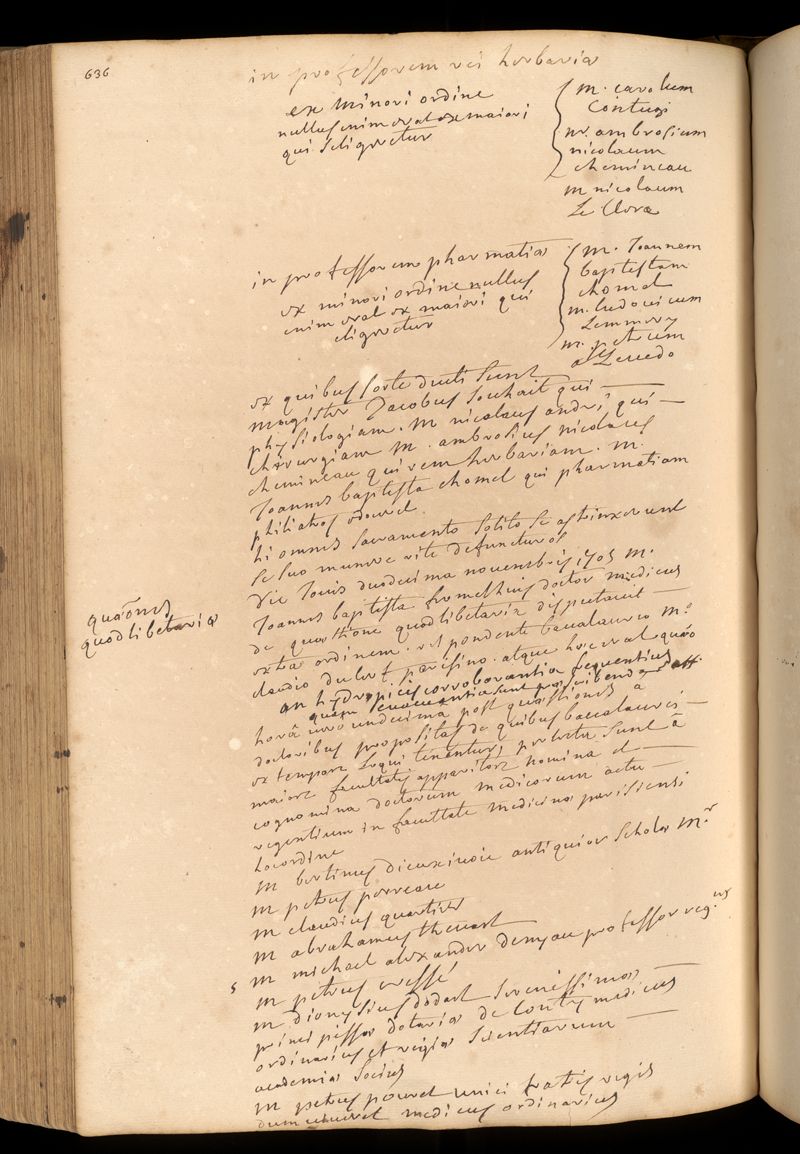 636
in professorem rei herbariæ
ex minori ordine
nullus enim erat ex maiori
qui eligeretur
m. carolum
Contugi
m. ambrosium
nicolaum
chemineau
m nicolaum
Le Clerc
in professorem pharmatiæ
ex minori ordine nullus
enim erat ex maiori qui
eligeretur
m. Joannem
baptistam
chomel
m. ludovicum
Lemmery
m. petrum
ex quibus sorte ducti sunt
magister Jacobus Souhait qui
physiologiam. M nicolaus andri, qui
chirurgiam M. ambrosius nicolaus
chemineau qui rem herbariam. M.
Joannes baptista chomel qui pharmatiam
philiatros edoceret
hi omnes sacramento solito se astinxerunt
se suo munere rite defuncturos
quãones
quodlibetariæ
Die Jovis duodecima novembris 1705 M.
Joannes baptista fromelhius doctor medicus
de quæstione quodlibetariæ disputavit
extra ordinem. respondente baccalaureo M.º
claudio du parisino. atque hæc erat quãõ
an hydropicis corroborantia frequentius
quam evacuantia sunt præscribenda aff.
horâ vero undecima post quæstiones a
doctoribus propositas de quibus baccalaurei
ex tempore loqui tenentur, perlecta sunt ã
maiore facultatis apparitore nomina et
cognomina doctorum medicorum actu
regentium in facultate medicinæ parisiensi
hocordine
M bertinus dieuxivoie antiquior scholæ M.r
M petrus perreau
M claudius quartier
M abrahamus thevart
5 M michael alexander denyau professor reg.us
M petrus cressé
M dionysius dodart serenissimæ
principissæ dotariæ de Conty medicus
ordinarius et regiæ scientiarum
academiæ socius
M petrus pourel unici fratis regis
dum viveret medicus ordinarius